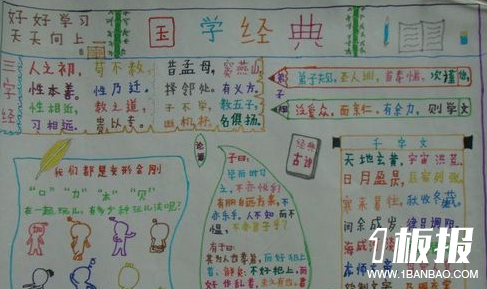 好好学习
天天向上
国学经典
三字经
人之初，
性本善。
性相近，
习相远。
苟不教，
性乃迁。
教之道，
贵以专。
昔孟母，
择邻处。
子不学，
窦燕山，
有义方。
教五子，
名俱扬。
弟子规
弟子规，圣人训，首孝悌，次谨信，
泛爱众，而亲仁，有余力，则学文
我们都是变形金刚
"口" "力" "木" "贝"
在一起玩儿，有多少种玩儿法呢？
论语
子曰：
学而时习
之，不亦悦乎
有朋自远方来，不
亦乐乎，人不知而不
愠，
有子曰：
经典
古诗
千字文
天地玄黄，宇宙洪荒
日月盈昃，辰宿列张
寒来暑往，秋收冬藏
闰余成岁，律吕调阳
板报
WWW.1BANBAO.COM